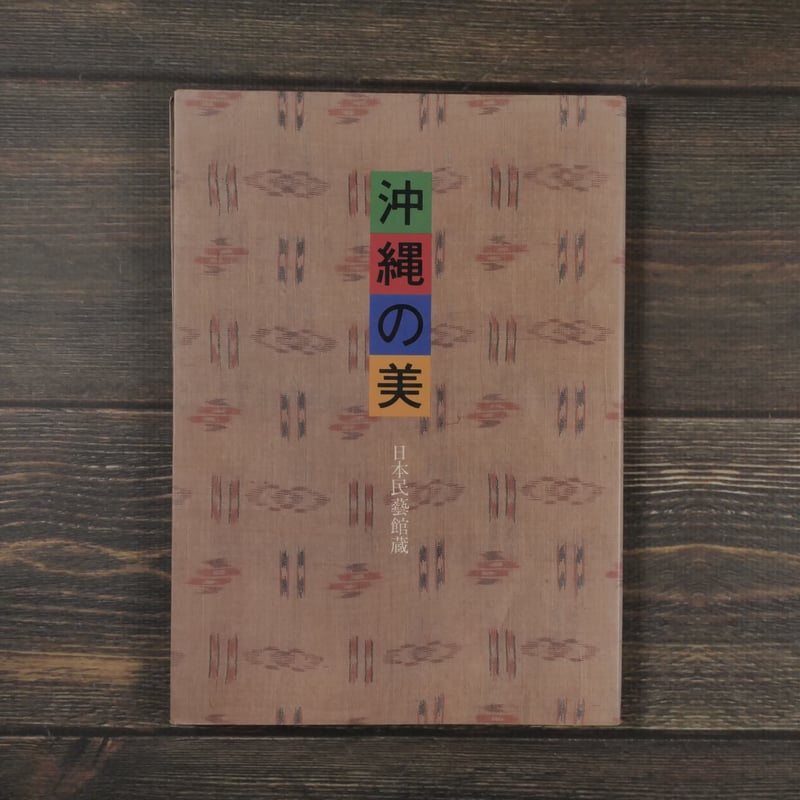 沖縄の美
日本民藝館蔵